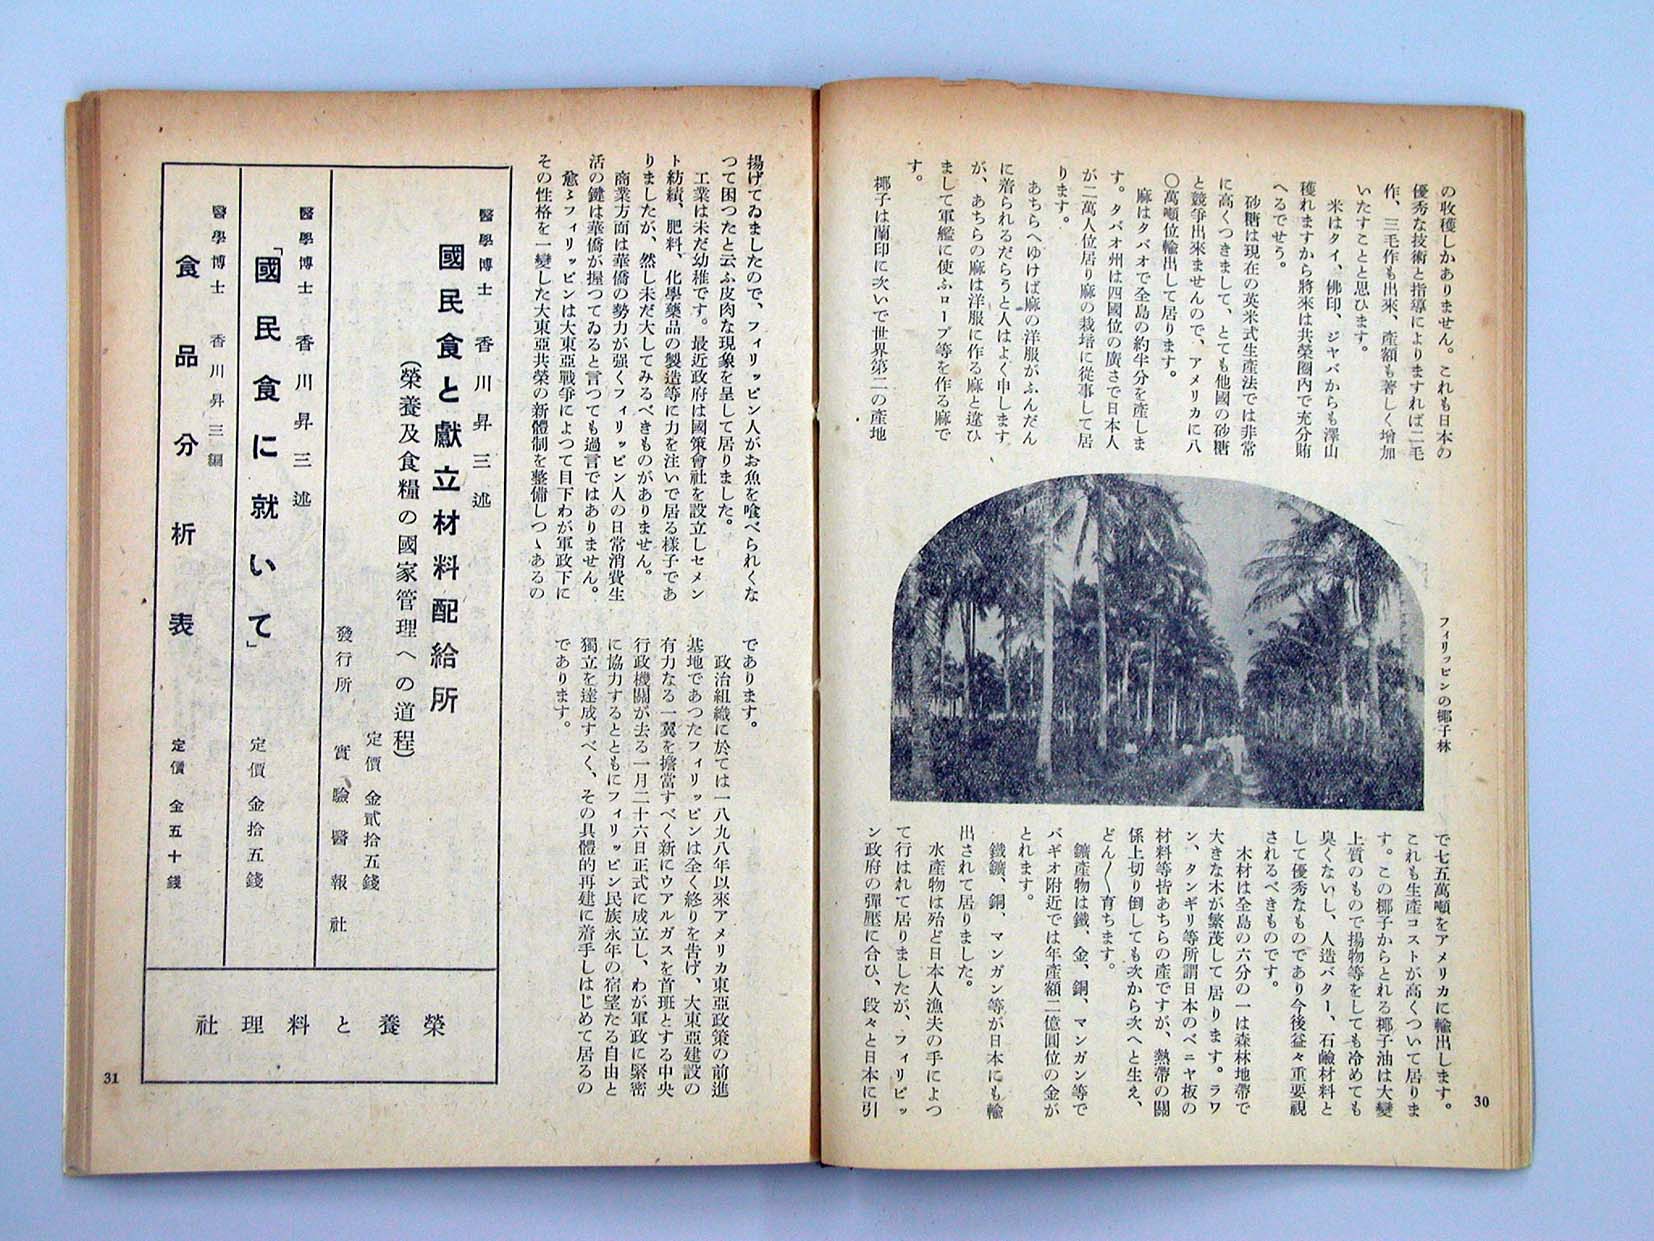 の收穫しかありません。これも日本の
優秀な技術と指導によりますれば二毛
作、三毛作も出來、產額も著しく增加
いたすことと思ひます。
米はタイ、佛印、ジャバからも澤山
穫れますから將來は共榮圈內で充分賄
へるでせう。
砂糖は現在の英米式生產法では非常
に高くつきまして、とても他國の砂糖
と競爭出來ませんので、アメリカに八
〇萬噸位輸出して居ります。
麻はタバオで全島の約半分を產しま
す。タバオ州は四國位の廣さで日本人
が二萬人位居り麻の栽培に從事して居
ります。
あちらへゆけば麻の洋服がふんだん
に着られるだらうと人はよく申します
が、あちらの麻は洋服に作る麻と違ひ
まして軍艦に使ふロープ等を作る麻で
す。
椰子は蘭印に次いで世界第二の產地
フィリッピンの椰子林
で七五萬噸をアメリカに輸出します。
これも生產コストが高くついて居りま
す。この椰子からとれる椰子油は大變
上質のもので揚物等をしても冷めても
臭くないし、人造バター、石鹼材料と
して優秀なものであり今後益々重要視
されるべきものです。
木材は全島の六分の一は森林地帶で
大きな木が繁茂して居ります。ラワ
ン、タンギリ等所謂日本のベニヤ板の
材料等皆あちらの產ですが、熱帶の關
係上切り倒しても次から次へと生え、
どん〱育ちます。
鑛產物は鐵、金、銅、マンガン等で
バギオ附近では年產額二億圓位の金が
とれます。
鐵鑛、銅、マンガン等が日本にも輸
出されて居りました。
水產物は殆ど日本人漁夫の手によつ
て行はれて居りましたが、フィリピッ
ン政府の彈壓に合ひ、段々と日本に引
30
揚げてゐましたので、フィリッピン人がお魚を喰べられくな
つて困つたと云ふ皮肉な現象を呈して居りました。
工業は未だ幼稚です。最近政府は國策會社を設立しセメン
ト紡績、肥料、化學藥品の製造等に力を注いで居る樣子であ
りましたが、然し未だ大してみるべきものがありません。
商業方面は華僑の勢力が强くフィリッピン人の日常消費生
活の鍵は華僑が握つてゐると言つても過言ではありません。
愈〻フィリッピンは大東亞戰爭によつて目下わが軍政下に
その性格を一變した大東亞共榮の新體制を整備しつゝあるの
であります。
政治組織に於ては一八九八年以來アメリカ東亞政策の前進
基地であつたフィリッピンは全く終りを吿げ、大東亞建設の
有力なる一翼を擔當すべく新にウアルガスを首班とする中央
行政機關が去る一月二十六日正式に成立し、わが軍政に緊密
に協力するとともにフィリッピン民族永年の宿望たる自由と
獨立を達成すべく、その具體的再建に着手しはじめて居るの
であります。
醫學博士 香川昇三述
國民食と獻立材料配給所
(榮養及食糧の國家管理への道程)
定價 金貳拾五錢
發行所 實驗醫報社
醫學博士 香川昇三述
「國民食に就いて」
定價 金拾五錢
醫學博士 香川昇三編
食品分析表
定價 金五十錢
榮養と料理社
31